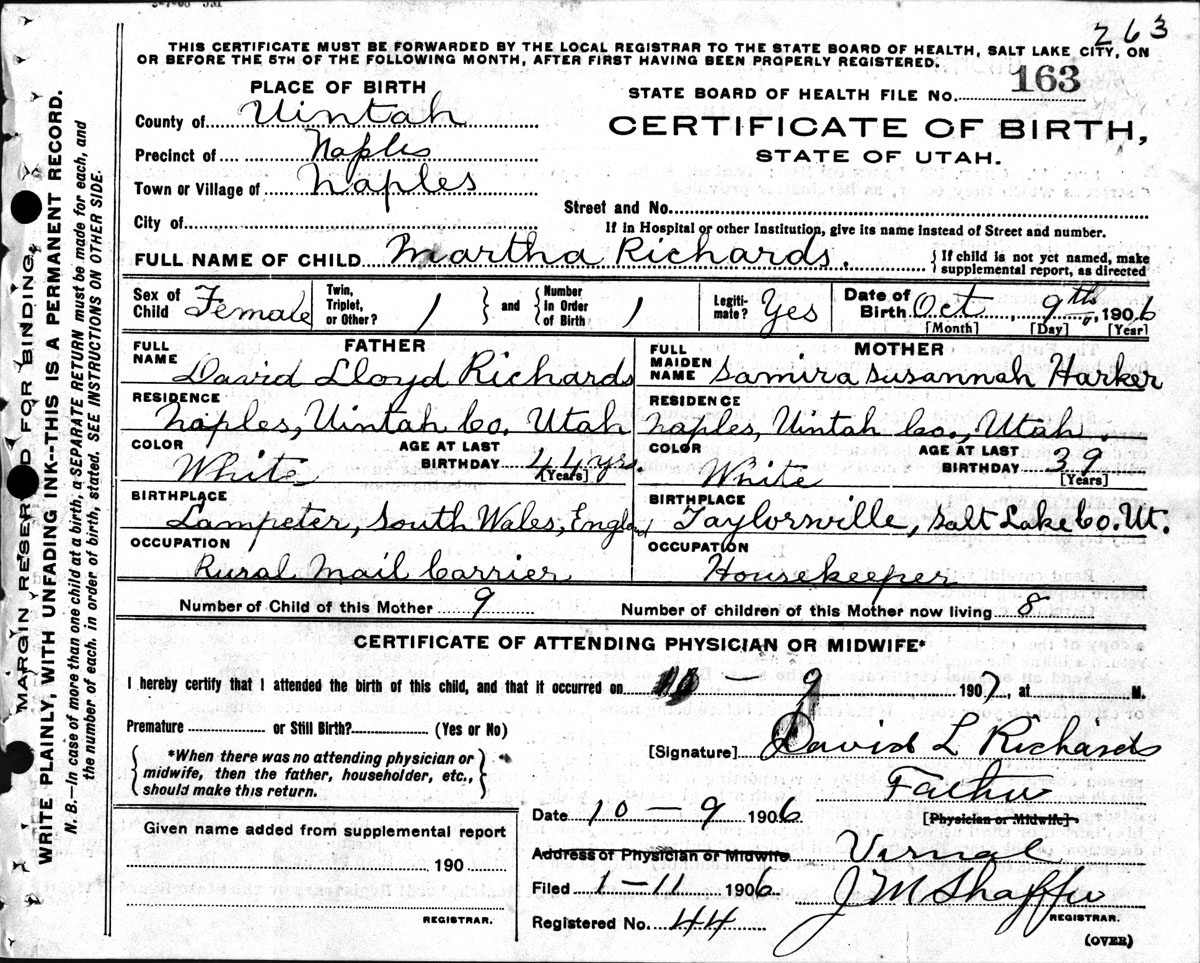 263
THIS CERTIFICATE MUST BE FORWARDED BY THE LOCAL REGISTRAR TO THE STATE BOARD OF HEALTH, SALT LAKE CITY, ON
OR BEFORE THE 5TH OF THE FOLLOWING MONTH, AFTER FIRST HAVING BEEN PROPERLY REGISTERED.
STATE BOARD OF HEALTH FILE NO. 163
CERTIFICATE OF BIRTH,
STATE OF UTAH.
PLACE OF BIRTH
County of Uintah
Precinct of Naples
Town or Village of Naples
City of
Street and No.
If in Hospital or other Institution, give its name instead of Street and number.
FULL NAME OF CHILD Martha Richards. { If child is not yet named, make supplemental report, as directed
Sex of Child Female Twin, Triplet, or Other? 1 } and { Number in Order of Birth 1 Legitimate? Yes Date of Birth Oct 9th, 1906
[Month] [Day] [Year]
FATHER
FULL NAME David Lloyd Richards
RESIDENCE
Naples, Uintah Co. Utah
COLOR White AGE AT LAST BIRTHDAY 44 yrs.
[Years]
BIRTHPLACE
Lampeter, South Wales, England
OCCUPATION
Rural Mail Carrier
MOTHER
FULL MAIDEN NAME Samira Susannah Harker
RESIDENCE
Naples, Uintah Co., Utah.
COLOR White AGE AT LAST BIRTHDAY 39
[Years]
BIRTHPLACE
Taylorsville, Salt Lake Co. Ut.
OCCUPATION
Housekeeper
Number of Child of this Mother 9 Number of children of this Mother now living 8
CERTIFICATE OF ATTENDING PHYSICIAN OR MIDWIFE*
I hereby certify that I attended the birth of this child, and that it occurred on 10 - 9 1907, at M.
Premature or Still Birth? (Yes or No)
{ *When there was no attending physician or
midwife, then the father, householder, etc.,
should make this return. }
[Signature] David L Richards
Father
[Physician or Midwife]
Date 10 - 9 1906
Address of Physician or Midwife Vernal
Filed 1-11 1906 J M Shaffer
REGISTRAR.
Registered No. 44
(OVER)
Given name added from supplemental report
190
REGISTRAR.
MARGIN RESERVED FOR BINDING.
WRITE PLAINLY, WITH UNFADING INK--THIS IS A PERMANENT RECORD.
N. B.—In case of more than one child at a birth, a SEPARATE RETURN must be made for each, and
the number of each. in order of birth, stated. SEE INSTRUCTIONS ON OTHER SIDE.